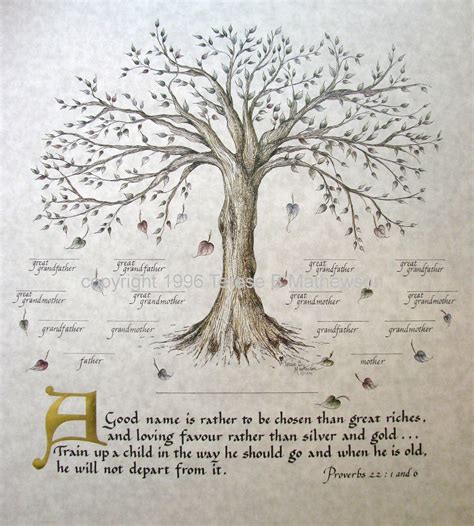 great great great great
grandfather grandfather grandfather grandfather
copyright 1996 Terese P Mathewson
great great great great
grandmother grandmother grandmother grandmother
grandfather grandmother grandfather grandmother
father mother
A Good name is rather to be chosen than great riches,
and loving favour rather than silver and gold...
Train up a child in the way he should go and when he is old,
he will not depart from it.
Proverbs 22 : 1 and 6